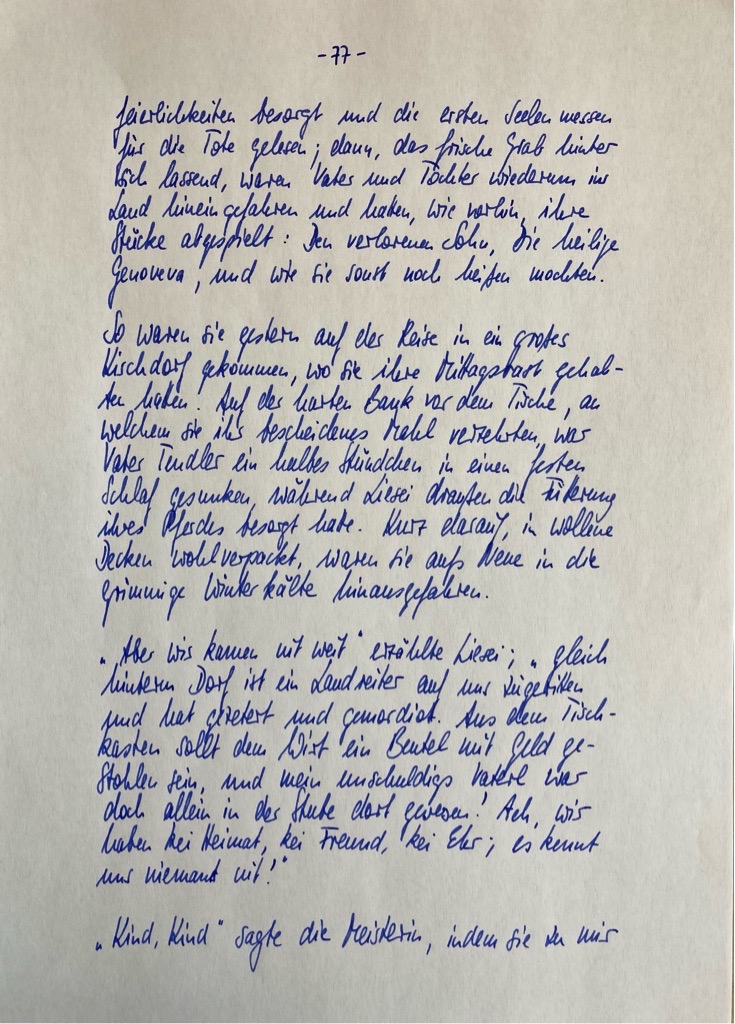 - 77 -
feierlichkeiten besorgt und die ersten Seelenmessen
für die Tote gelesen; dann, das frische Grab hinter
sich lassend, waren Vater und Tochter wiederum ins
Land hineingefahren und haben, wie vorhin, ihre
Stücke abgespielt: Den verlorenen Sohn, Die heilige
Genoveva, und wie sie sonst noch heißen mochten.
So waren sie gestern auf der Reise in ein großes
Kirchdorf gekommen, wo sie ihre Mittagsrast gehal-
ten haben. Auf der harten Bank vor dem Tische, an
welchem sie ihr bescheidenes Mahl verzehrten, war
Vater Tendler ein halbes Stündchen in einen festen
Schlaf gesunken, während Liesei draußen die Fütterung
ihres Pferdes besorgt hate. Kurz darauf, in wollene
Decken wohlverpackt, waren sie aufs Neue in die
grimmige Winterkälte hinausgefahren.
„Aber wir kamen nit weit" erzählte Liesei; „gleich
hinterm Dorf ist ein Landreiter auf uns zugeritten
und hat gezetert und gemordiot. Aus dem Tisch-
kasten sollt dem Wirt ein Beutel mit Geld ge-
stohlen sein, und mein unschuldigs Vaterl war
doch allein in der Stube dort gewesen! Ach, wir
haben kei Heimat, kei Freund, kei Ehr; es kennt
uns niemant nit!"
„Kind, Kind" sagte die Meisterin, indem sie zu mir